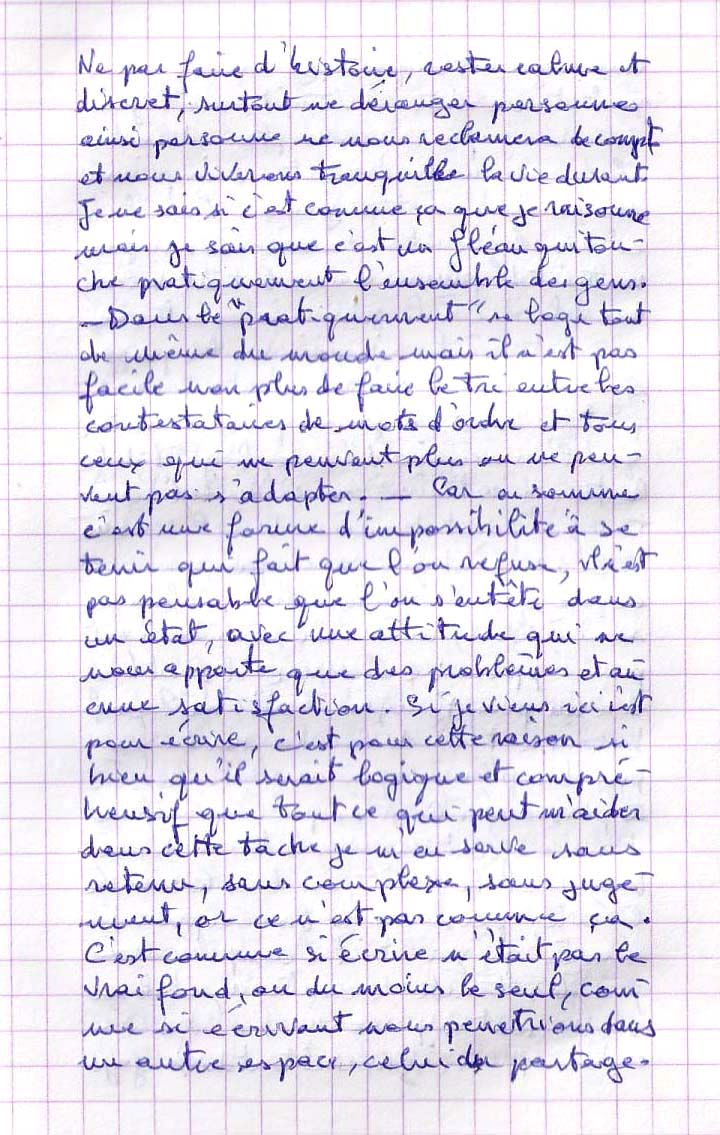 Ne pas faire d'histoire, rester calme et
discret, surtout ne déranger personnes
ainsi personne ne nous reclamera de compt
et nous viverons tranquille la vie durant.
Je ne sais si c'est comme ça que je raisonne
mais je sais que c'est un fléau qui tou-
che pratiquement l'ensemble des gens.
— Dans le "pratiquement" se loge tout
de même du monde mais il n'est pas
facile non plus de faire le tri entre les
contestataires de mots d'ordre et tous
ceux qui ne peuvent plus ou ne peu-
vent pas s'adapter. — Car en somme
c'est une forme d'impossibilité à se
tenir qui fait que l'on refuse, il n'est
pas pensable que l'on s'entête dans
un état, avec une attitude qui ne
nous apporte que des problèmes et au
cune satisfaction. Si je viens ici c'est
pour écrire, c'est pour cette raison si
bien qu'il serait logique et compré-
hensif que tout ce qui peut m'aider
dans cette tache je m'en serve sans
retenu, sans complexe, sans juge-
ment, or ce n'est pas comme ça.
C'est comme si écrire n'était pas le
vrai fond, ou du moins le seul, com
me si écrivant nous penetrions dans
un autre espace, celui du partage.